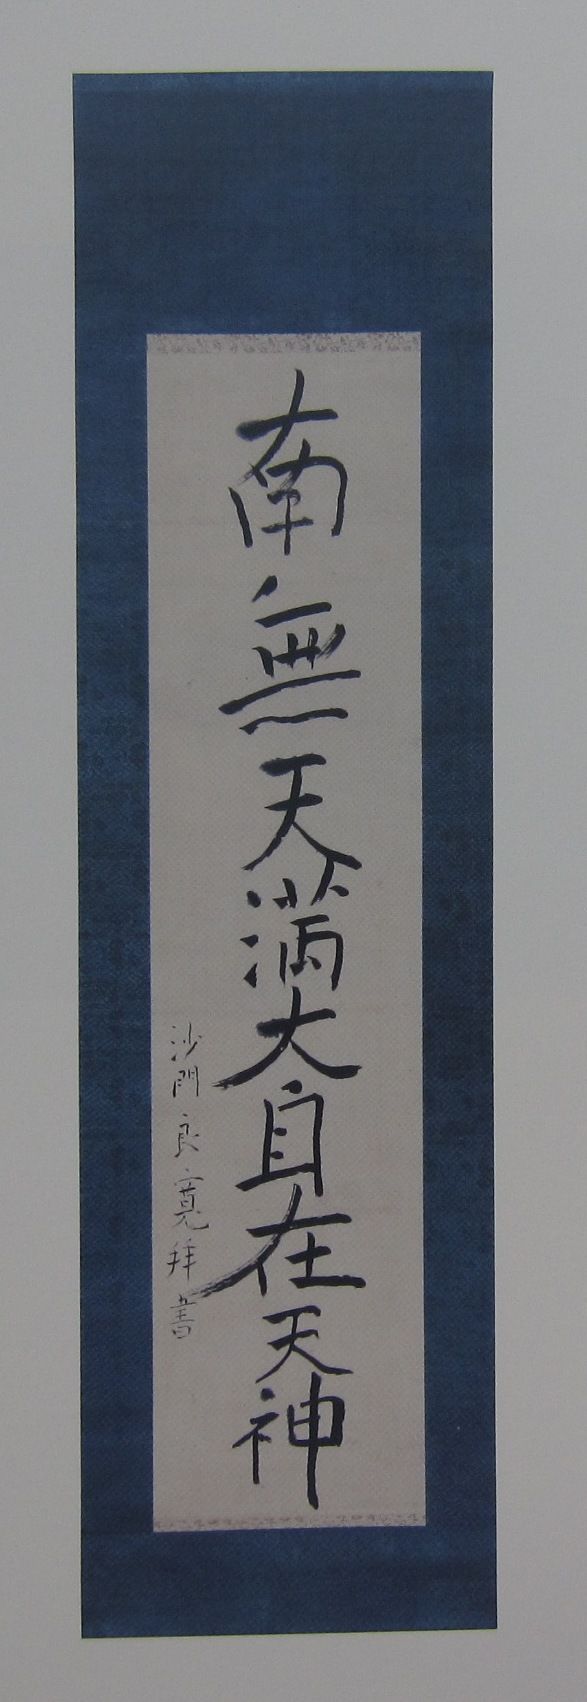 南無天満大自在天神
沙門良寛拝書